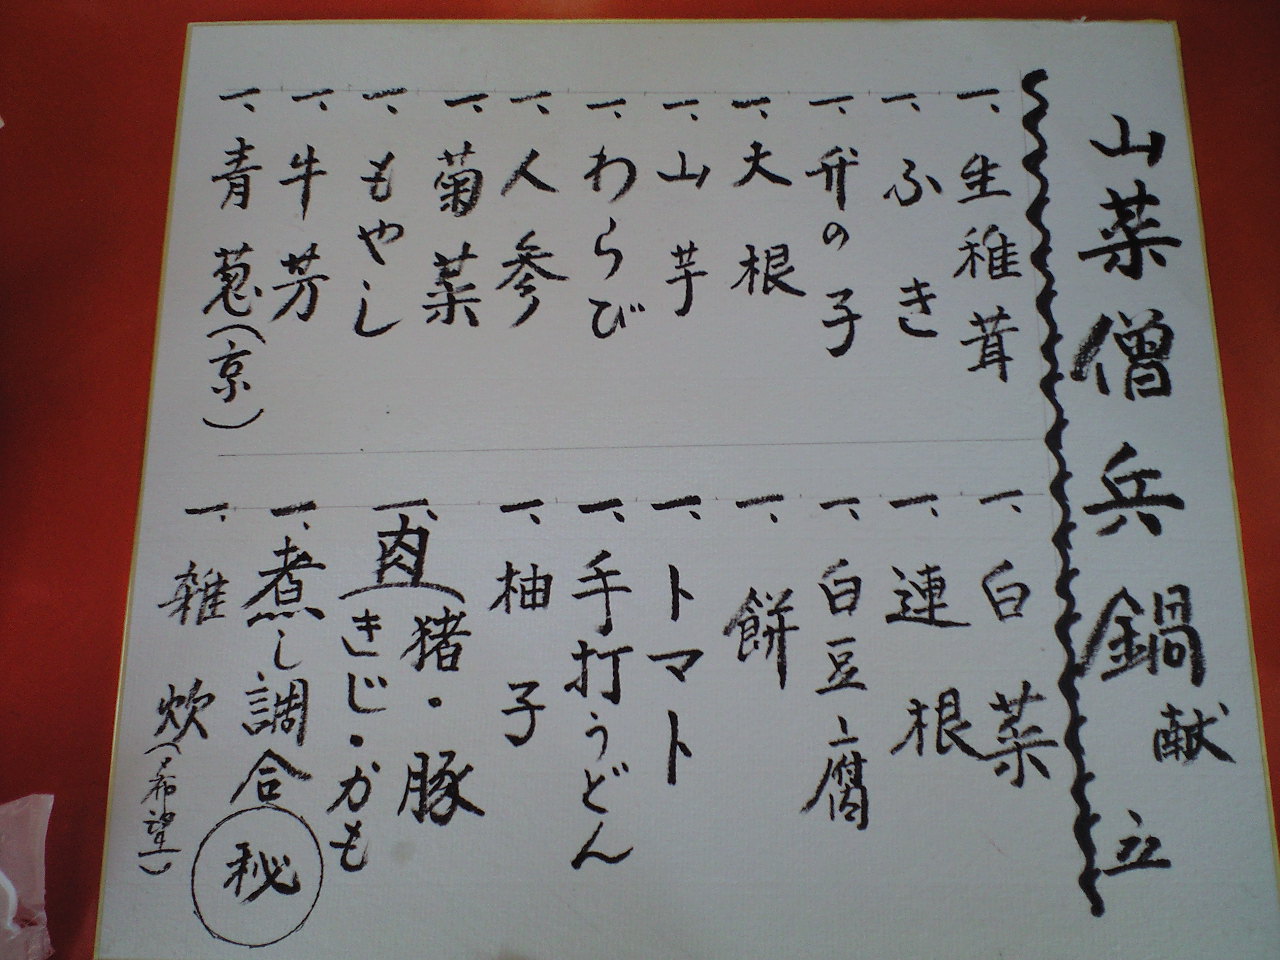 山菜僧兵鍋献立
一、生稚茸
一、ふき
一、竹の子
一、大根
一、山芋
一、わらび
一、人参
一、菊菜
一、もやし
一、牛芳
一、青葱(京)
一、白菜
一、連根
一、白豆腐
一、餅
一、トマト
一、手打うどん
一、柚子
一、肉(猪・豚
きじ・かも
一、煮し調合 秘
一、雑炊(希望)